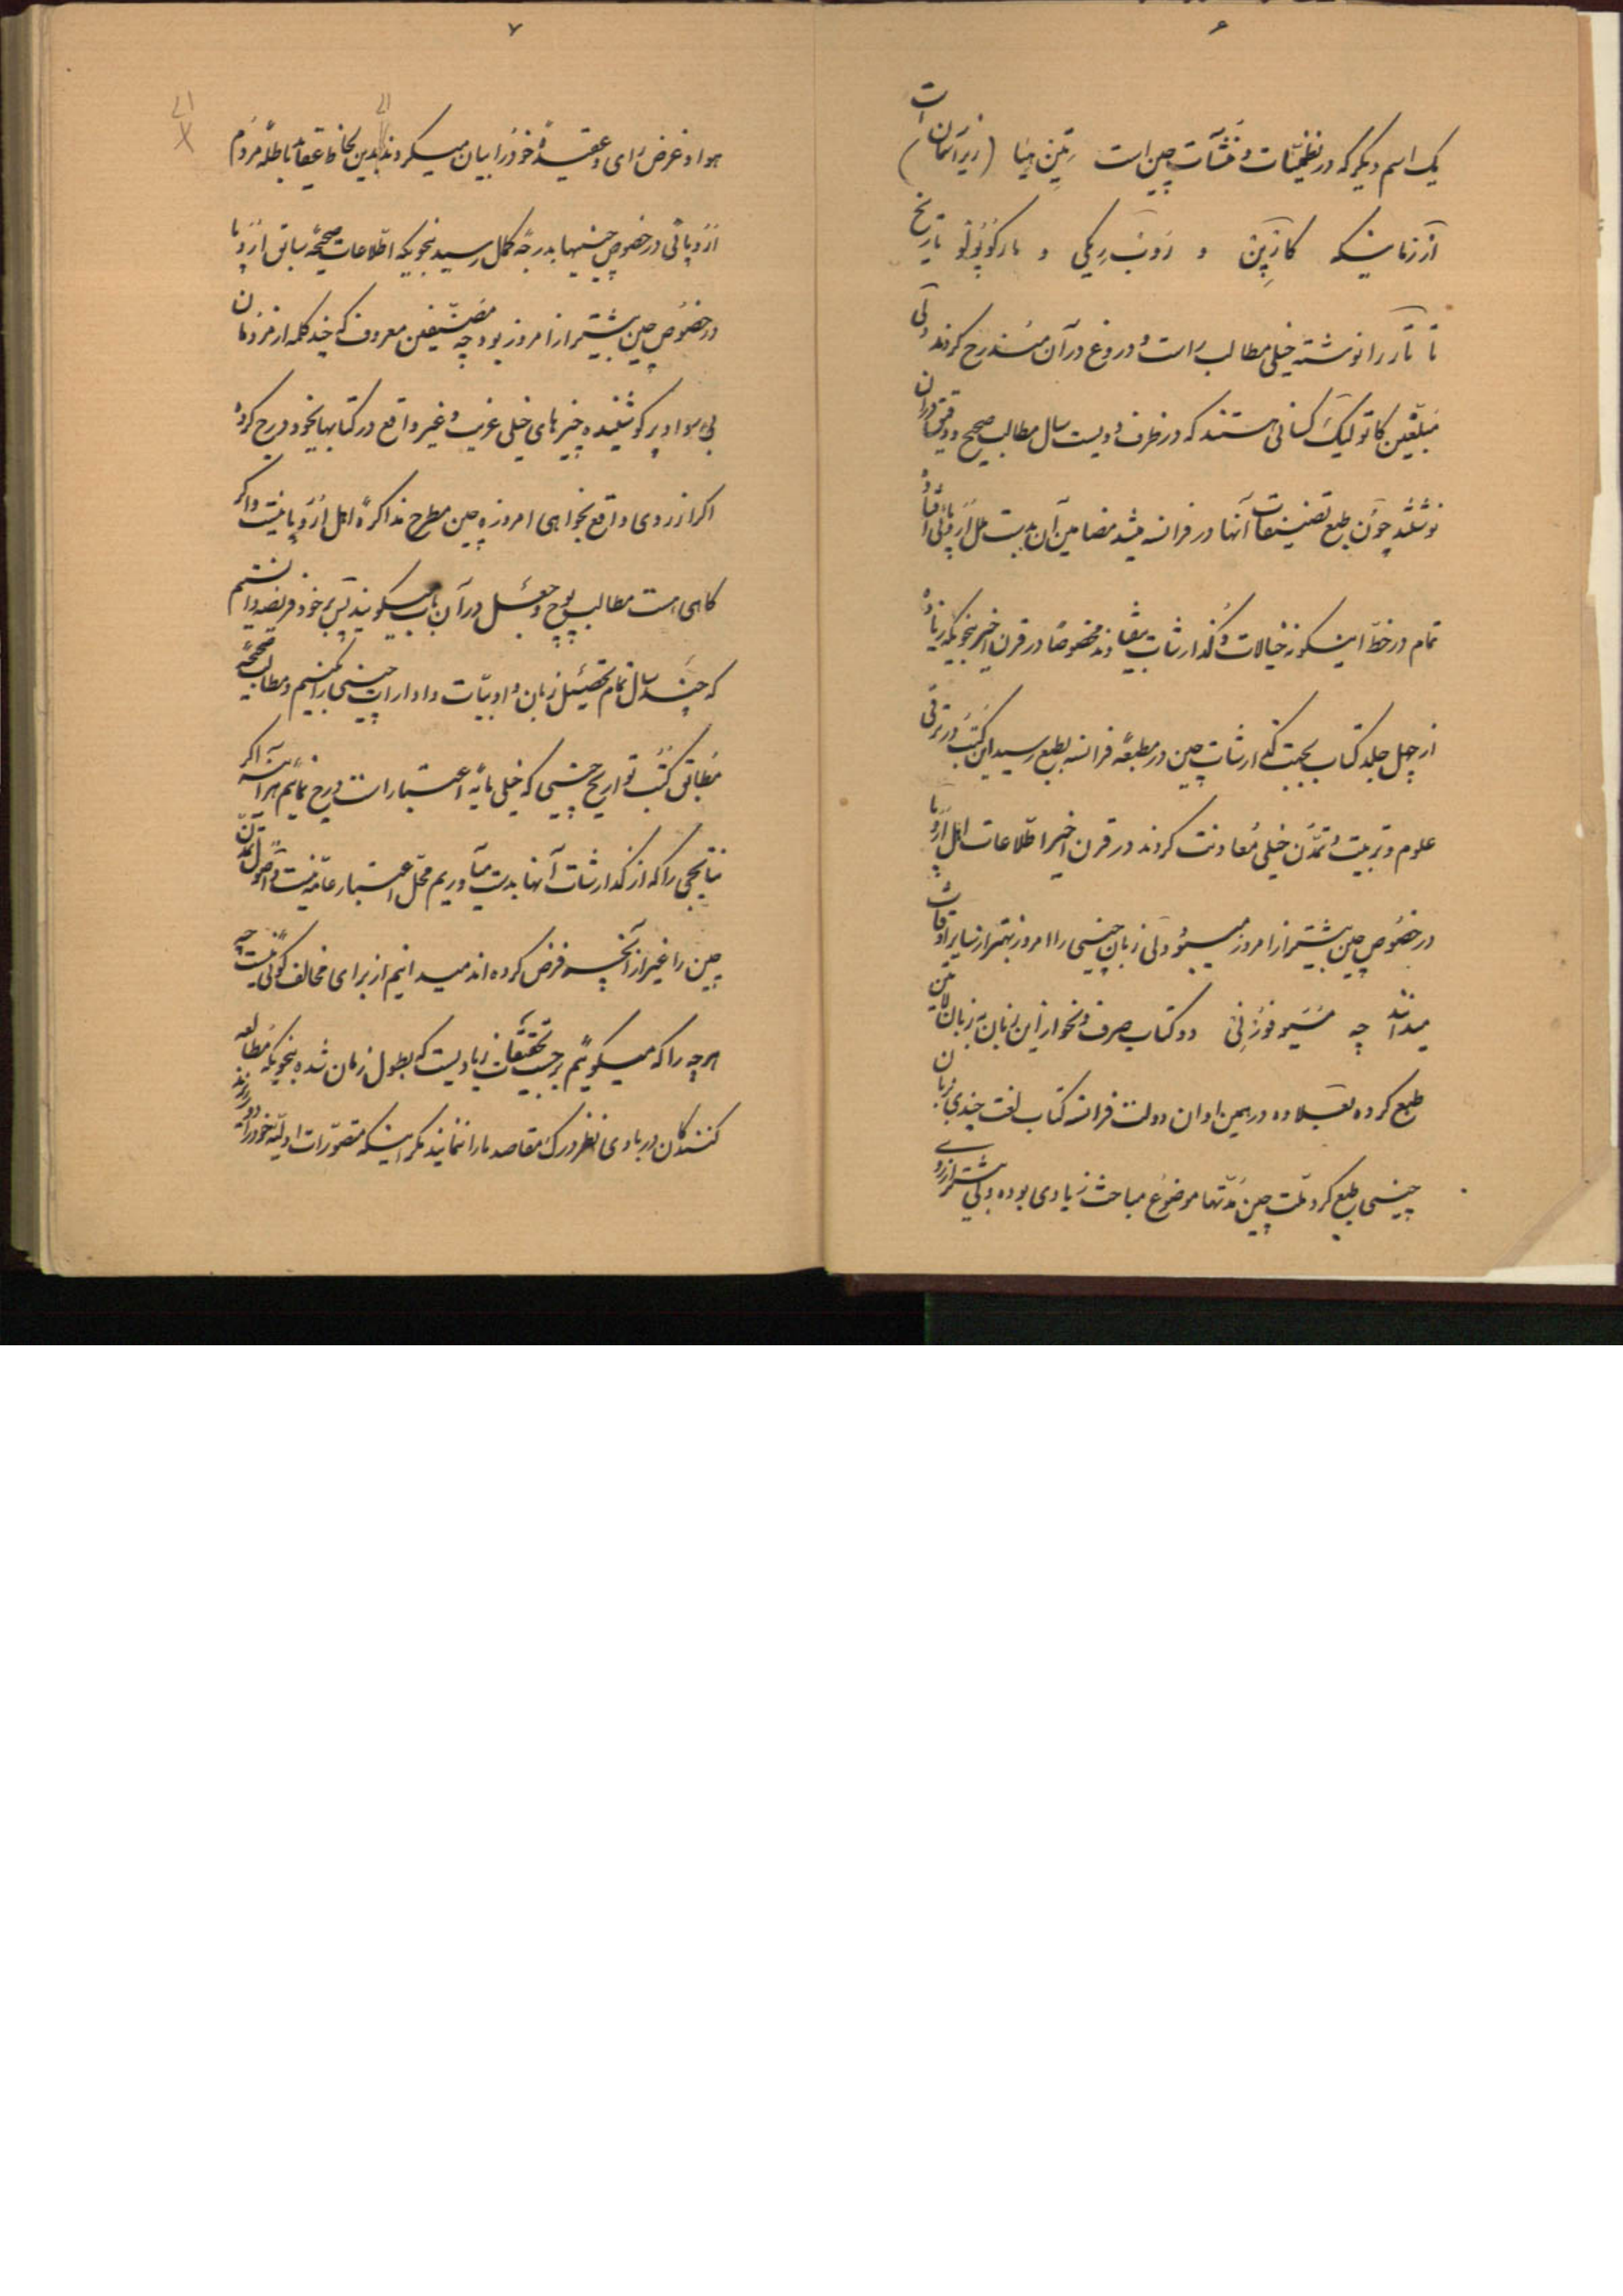 ۶
یک اسم دیگر که در نظمیّات و منشآت چین است تین هیا (زیر آسمان) است
از زمانیکه کارپن و روبریکی و مارکوپولو تاریخ
تاتار را نوشته خیلی مطالب راست و دروغ در آن مندرج کردند ولی
مبلّغین کاتولیک کسانی هستند که در ظرف دویست سال مطالب صحیح و دقیق در آن
نوشتند چون طبع تصنیفات آنها در فرانسه میشد مضامین آن بدست ملل اروپائی افتاده
تمام در خطّ اینگونه خیالات و گذارشات بیفتادند مخصوصاً در قرن اخیر بنحویکه زیاده
از چهل جلد کتاب بجهت گذارشات چین در مطبعهٔ فرانسه بطبع رسید این کتب در ترقی
علوم و تربیت و تمدّن خیلی معاونت کردند در قرن اخیر اطّلاعات اهل اروپا
در خصوص چین بیشتر از امروز میبود ولی زبان چینی را امروز بهتر از سایر اوقات
میدانند چه مسیو فورنی دو کتاب صرف و نحو از این زبان به زبان لاتین
طبع کرده بعلاوه در همین اوان دولت فرانسه کتاب لغت چندی بزبان
چینی طبع کرد ملّت چین مدّتها موضوع مباحث زیادی بوده ولی بیشتر از روی
۷
هوا و غرض رأی و عقیدهٔ خود را بیان میکردند بدین لحاظ عقاید باطلهٔ مردم
اروپائی در خصوص چینیها بدرجهٔ کمال رسید بنحویکه اطّلاعات صحیحهٔ سابق اروپا
در خصوص چین بیشتر از امروز بود چه مصنّفین معروف که چند کلمه از مردمان
بی سواد پرگو شنیده چیزهای خیلی غریب و غیر واقع در کتابهای خود درج کرده
اگر از روی واقع بخواهی امروزه چین مطرح مذاکرهٔ اهل اروپا نیست و اگر
گاهی است مطالب پوچ و جعل در آن باب میگویند پس بر خود فریضه دانستم
که چند سال تمام تحصیل زبان و ادبیّات و ادارات چینی را کنیم و مطالب صحیحه
مطابق کتب تواریخ چینی که خیلی مایهٔ اعتبار است درج نمایم هر آینه اگر
نتایجی را که از گذارشات آنها بدست میآوریم محلّ اعتبار عامّه نیست و اصول تمدّن
چین را غیر از آنچه فرض کرده اند میدانیم از برای مخالف گوئی نیست چه
هر چه را که میگویم بر حسب تحقیقات زیادیست که بطول زمان شده بنحویکه مطالعه
کنندگان در بادی نظر درک مقاصد ما را ننمایند مگر اینکه متصوّرات اولیّه خود را دور اندازند